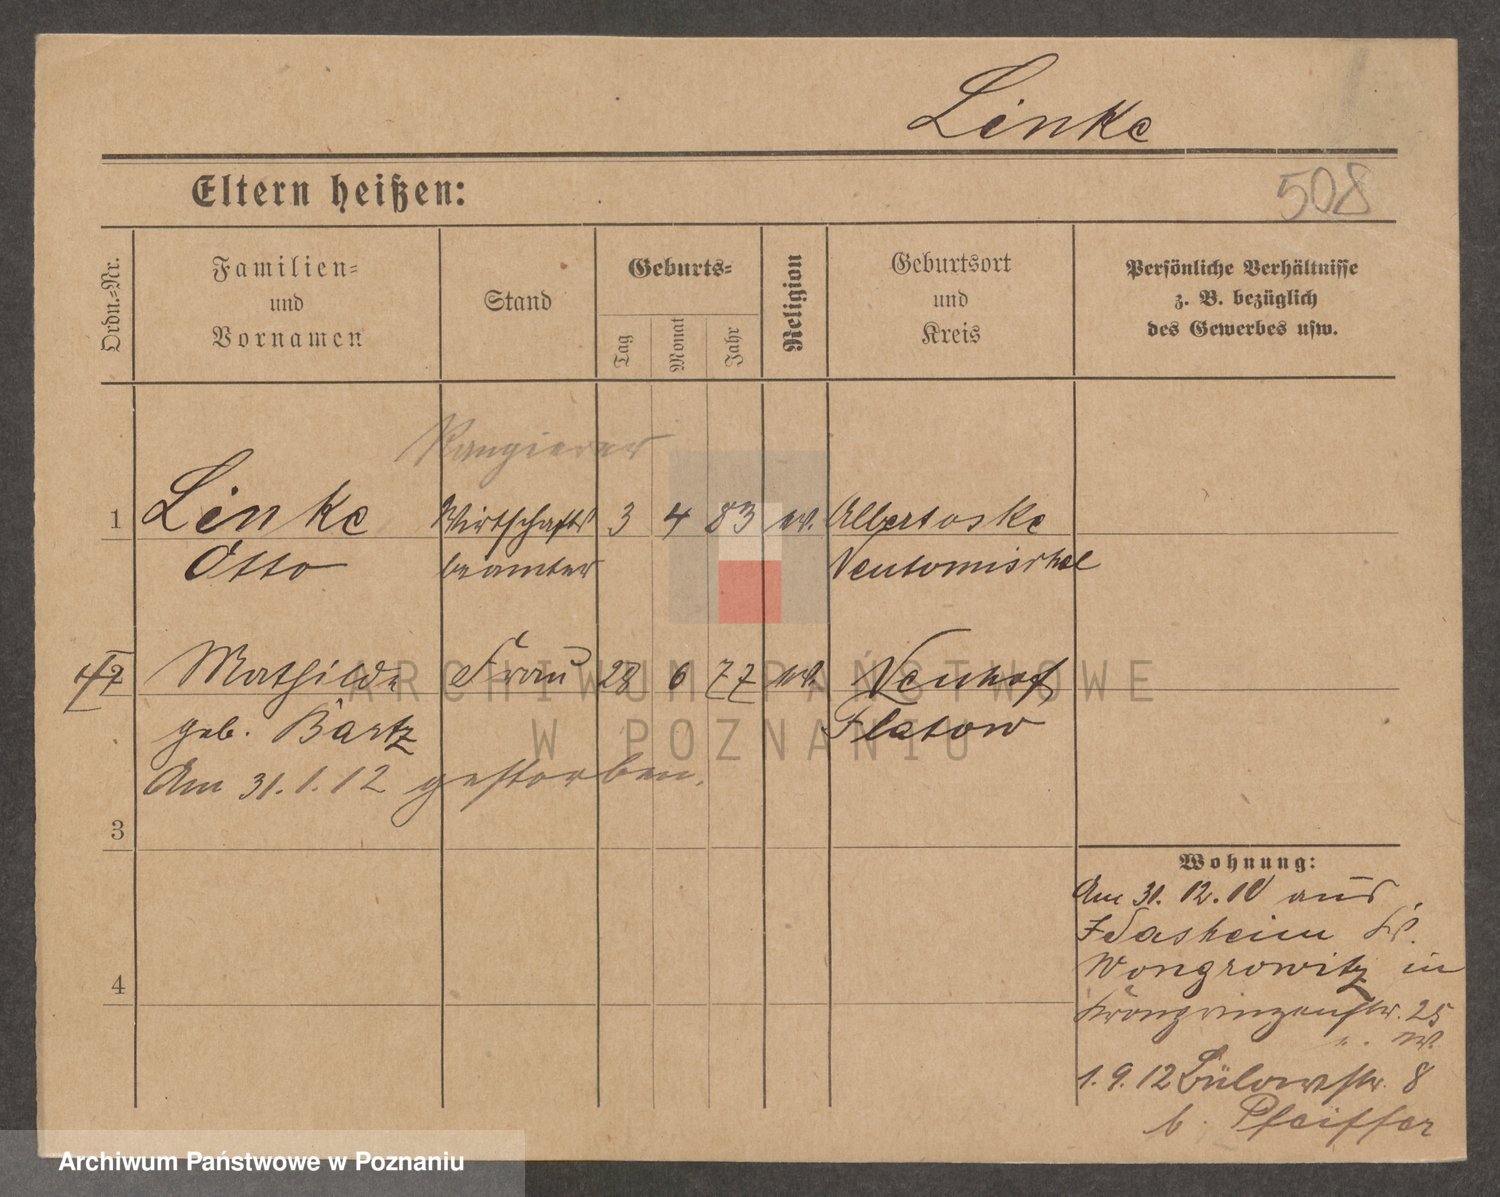 Linke
Eltern heißen:
508
Ordn.-Nr.
Familien-
und
Vornamen
Stand
Geburts-
Tag
Monat
Jahr
Religion
Geburtsort
und
Kreis
Persönliche Verhältnisse
z. B. bezüglich
des Gewerbes usw.
Rangierer
1 Linke Wirtschafts 3 4 83 ev. Albertoske
Otto beamter Neutomischel
2 Mathilde Frau 28 6 77 ev. Neuhof
geb. Bartz Flatow
Am 31.1.12 gestorben.
3
Wohnung:
Am 31.12.10 aus
Idasheim Kr.
4 Wongrowitz in
Kronprinzenstr. 25
1.9.12 Bülowstr. 8
b. Pfeiffer
ARCHIWUM PAŃSTWOWE
W POZNANIU
Archiwum Państwowe w Poznaniu